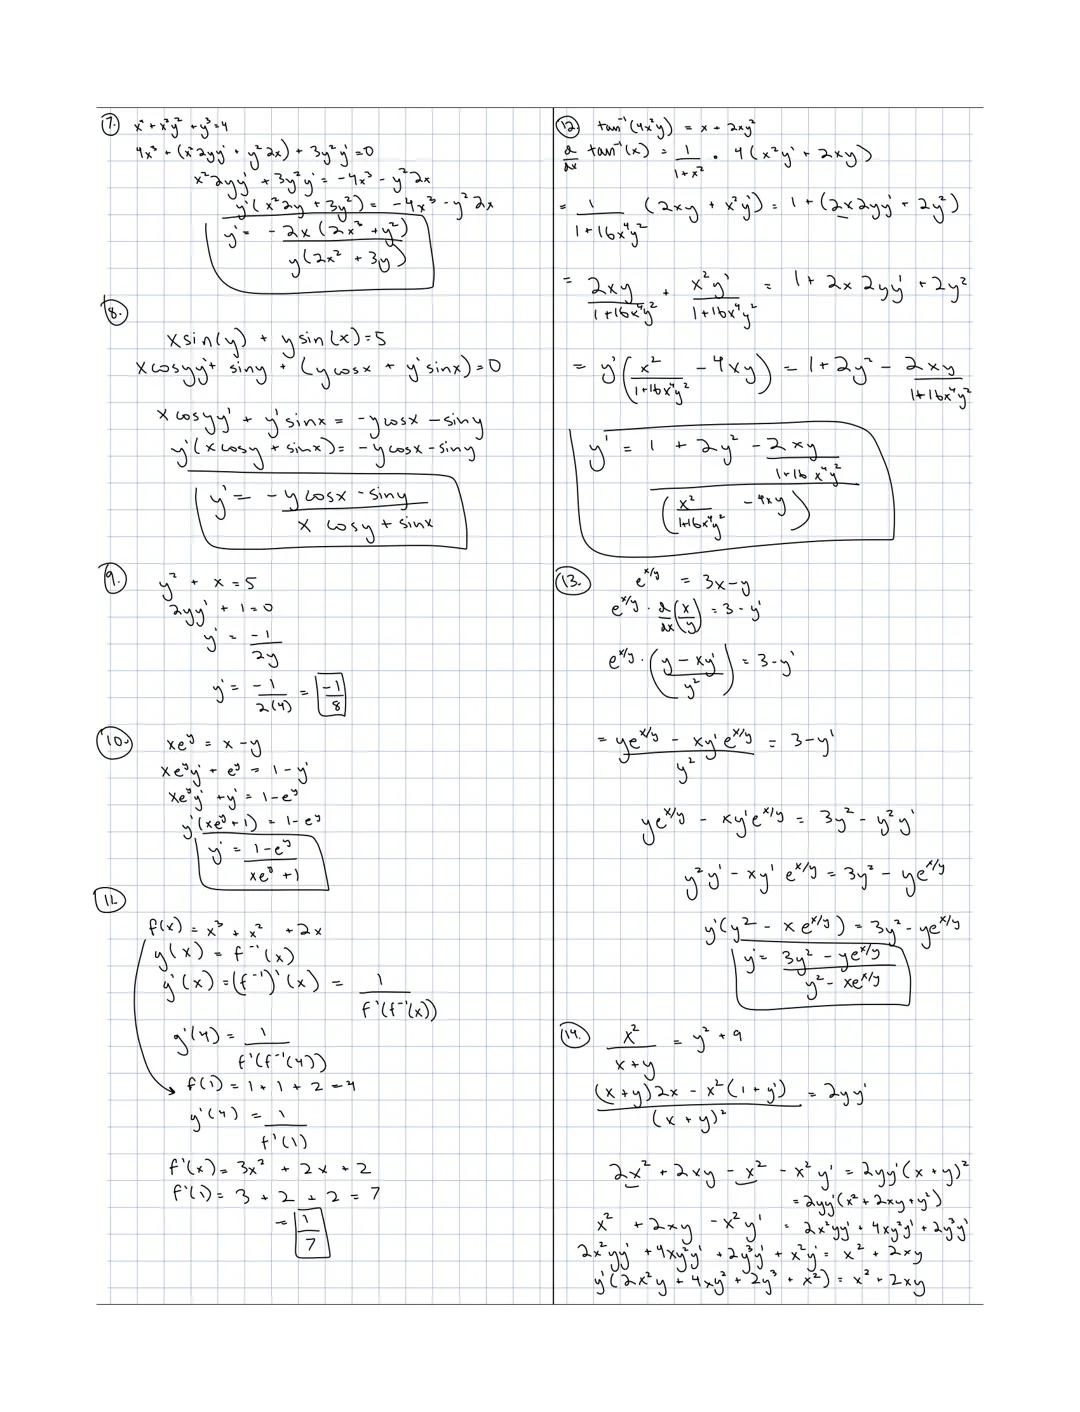 7. x⁴ + x²y² + y³ = 4
4x³ + (x²2yy' + y²2x) + 3y²y' = 0
x²2yy' + 3y²y' = -4x³ - y²2x
y'(x²2y + 3y²) = -4x³ - y²2x
y' = -2x(2x² + y²) / y(2x² + 3y)
8.
xsin(y) + ysin(x) = 5
xcosyy' + siny + (ycosx + y'sinx) = 0
xcosyy' + y'sinx = -ycosx - siny
y'(xcosy + sinx) = -ycosx - siny
y' = (-ycosx - siny) / (x cosy + sinx)
9. y² + x = 5
2yy' + 1 = 0
y' = -1/2y
y' = -1/2(4) = -1/8
10. xe^y = x - y
xe^y y' + e^y = 1 - y'
xe^y y' + y' = 1 - e^y
y'(xe^y + 1) = 1 - e^y
y' = (1 - e^y) / (xe^y + 1)
11.
f(x) = x³ + x² + 2x
g(x) = f⁻¹(x)
g'(x) = (f⁻¹)'(x) = 1 / f'(f⁻¹(x))
g'(4) = 1 / f'(f⁻¹(4))
f(1) = 1 + 1 + 2 = 4
g'(4) = 1 / f'(1)
f'(x) = 3x² + 2x + 2
f'(1) = 3 + 2 + 2 = 7
= 1/7
12. tan⁻¹(4x²y) = x + 2xy²
d/dx tan⁻¹(x) = 1/(1+x²) · 4(x²y' + 2xy)
= 1/(1+16x⁴y²) (2xy + x²y') = 1 + (2x2yy' + 2y²)
= 2xy/(1+16x⁴y²) + x²y'/(1+16x⁴y²) = 1 + 2x2yy' + 2y²
= y'(x²/(1+16x⁴y²) - 4xy) = 1 + 2y² - 2xy/(1+16x⁴y²)
y' = (1 + 2y² - 2xy/(1+16x⁴y²)) / (x²/(1+16x⁴y²) - 4xy)
13. e^(x/y) = 3x - y
e^(x/y) · d/dx(x/y) = 3 - y'
e^(x/y) · ((y - xy')/y²) = 3 - y'
= (ye^(x/y) - xy'e^(x/y)) / y² = 3 - y'
ye^(x/y) - xy'e^(x/y) = 3y² - y²y'
y²y' - xy'e^(x/y) = 3y² - ye^(x/y)
y'(y² - xe^(x/y)) = 3y² - ye^(x/y)
y' = (3y² - ye^(x/y)) / (y² - xe^(x/y))
14. x²/(x+y) = y² + 9
((x+y)2x - x²(1+y')) / (x+y)² = 2yy'
2x² + 2xy - x² - x²y' = 2yy'(x+y)²
= 2yy'(x² + 2xy + y²)
x² + 2xy - x²y' = 2x²yy' + 4xy²y' + 2y³y'
2x²yy' + 4xy²y' + 2y³y' + x²y' = x² + 2xy
y'(2x²y + 4xy² + 2y³ + x²) = x² + 2xy